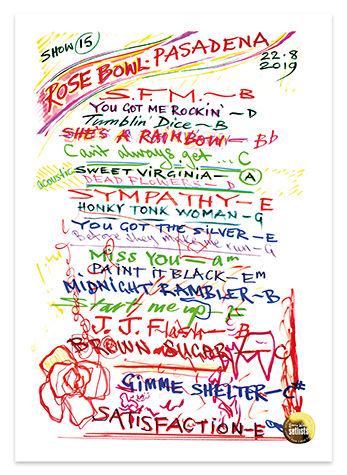 SHOW 15
ROSE BOWL - PASADENA
22.8
2019
S.F.M. ~ B
YOU GOT ME ROCKIN' - D
Tumblin' Dice ~ B
SHE'S A RAINBOW - Bb
Can't always get... C
acoustic
SWEET VIRGINIA - A
DEAD FLOWERS - D
SYMPATHY - E
HONKY TONK WOMAN - G
YOU GOT THE SILVER - E
Before they make me run - G
Miss You - am
PAINT IT BLACK - Em
MIDNIGHT RAMBLER - B
Start me up - F
J.J. Flash - B
BROWN SUGAR - C
GIMME SHELTER - C#
SATISFACTION - E
setlists